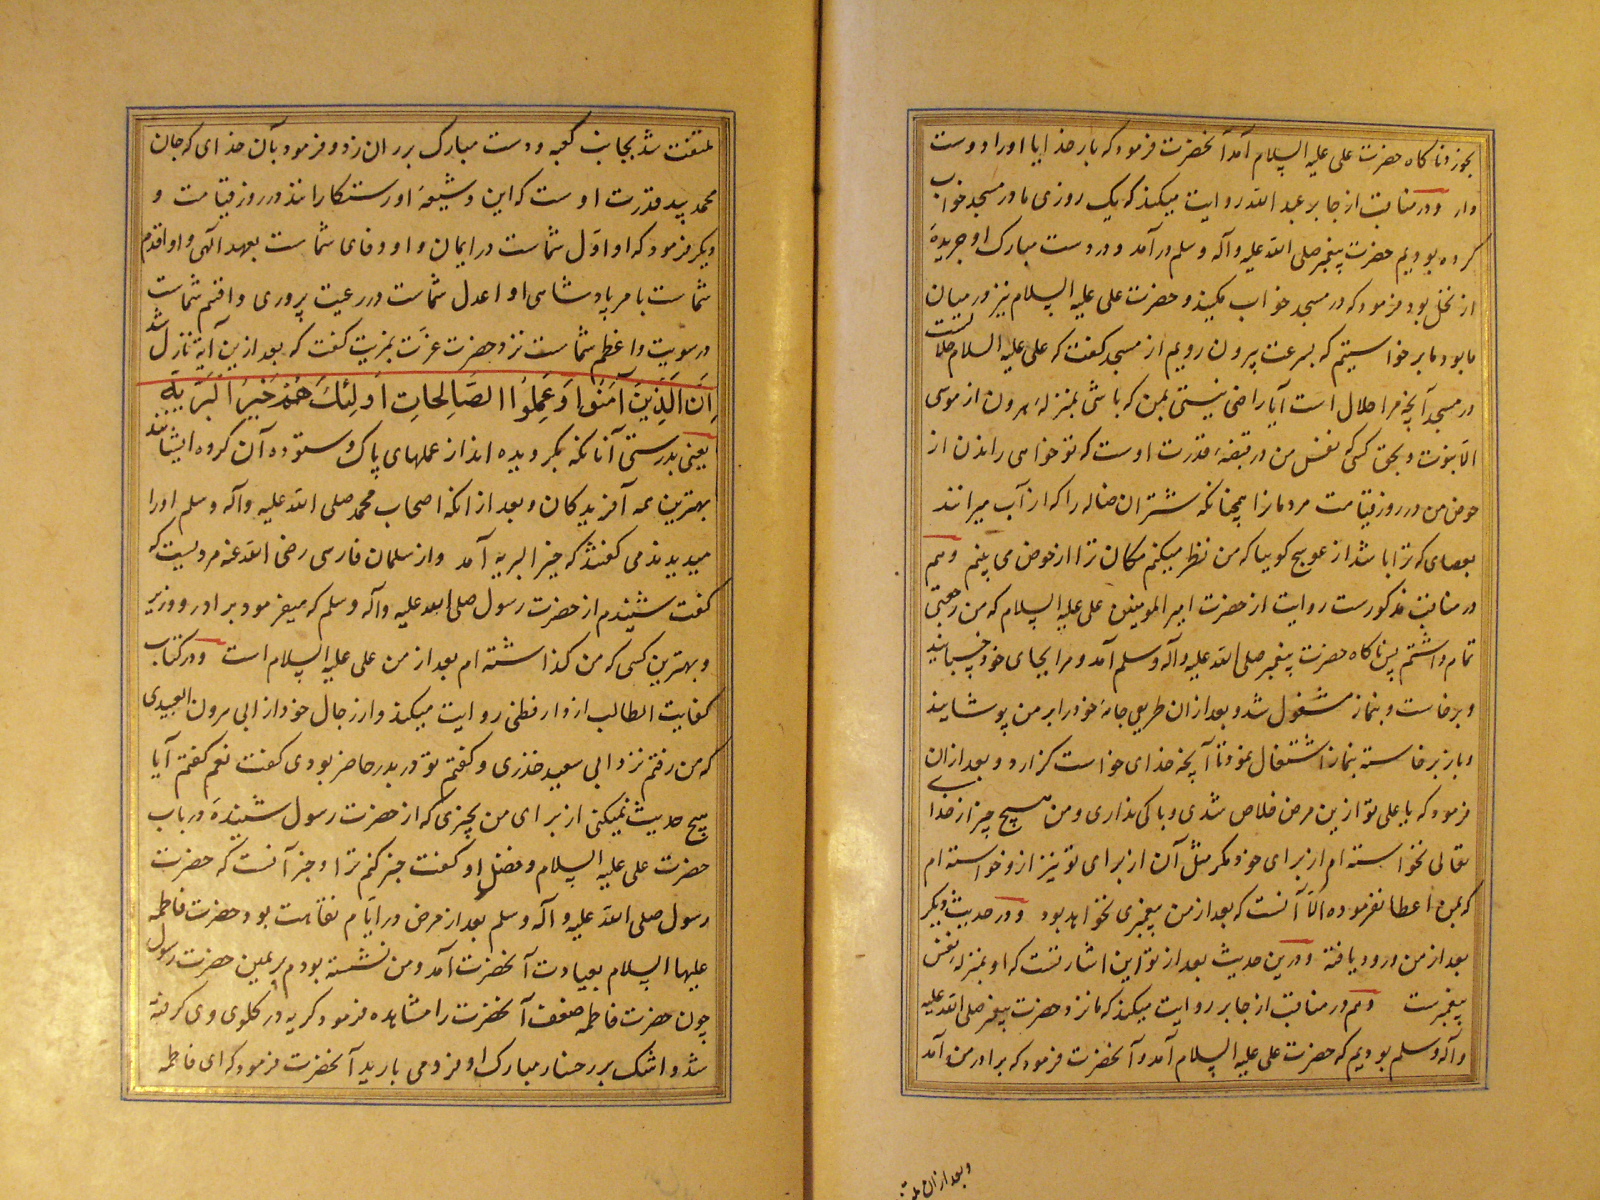 بخورد ناگاه حضرت علی علیه السلام آمد آنحضرت فرمود که بار خدایا او را دوست
دار و در مناقبت از جابر عبد الله روایت میکند که یک روزی ما در مسجد خواب
کرده بودیم حضرت پیغمبر صلی الله علیه و آله و سلم در آمد و در دست مبارک او جریدهٔ
از نخل بود فرمود که در مسجد خواب میکنید و حضرت علی علیه السلام نیز در میان
ما بود ما برخواستیم که بسرعت بیرون رویم از مسجد گفت که علی علیه السلام حلالست
در مسجد آنچه مرا حلال است آیا راضی نیستی بمن که باشی بمنزلهٔ هرون از موسی
الا بنوت و بحق کسی که نفس من در قبضهٔ قدرت اوست که تو خواهی راندن از
حوض من در روز قیامت مردمان را همچنانکه شتران ضاله را که از آب میرانند
بعصای که ترا باشد از عوسج گوییا که من نظر میکنم مکان ترا از حوض می بینم و هم
در مناقب مذکورست روایت از حضرت امیر المومنین علی علیه السلام که من زحمتی
تمام داشتم پس ناگاه حضرت پیغمبر صلی الله علیه و آله و سلم آمد و مرا بجای خود خسبانید
و برخاست و بنماز مشغول شد و بعد از ان طرفی جامهٔ خود را بر من پوشانید
و باز برخاسته بنماز اشتغال نمود تا آنچه خدای خواست گزارد و بعد از ان
فرمود که یا علی تو ازین مرض خلاص شدی و باکی نداری و من هیچ چیز از خدا
تعالی نخواسته ام از برای خود مگر مثل آن از برای تو نیز از و خواسته ام
که بمن اعطا نفرموده الا آنست که بعد از من پیغمبری نخواهد بود و در حدیث دیگر
بعد از من ورود یافته و درین حدیث بعد از تو این اشارتست که او بمنزله نفس
پیغمبرست و هم در مناقبت از جابر روایت میکند که ما نزد حضرت پیغمبر صلی الله علیه
و آله و سلم بودیم که حضرت علی علیه السلام آمد و آنحضرت فرمود که برادر من آمد
و بعد از ان
ملتفت شد بجانب کعبه و دست مبارک بر ران زد و فرمود بآن خدای که جان
محمد بید قدرت اوست که این و شیعهٔ او رستکارانند در روز قیامت و
دیگر فرمود که او اول شماست در ایمان و او وفای شماست بعهد الهی و او اقدم
شماست بامر پادشاهی او اعدل شماست در رعیت پروری و اقسم شماست
در سویت و اعظم شماست نزد حضرت عزت بمزیت گفت که بعد ازین آیه نازل شد
اِنَّ الَّذِینَ آمَنُوا وَعَمِلُوا الصَّالِحَاتِ اُولٰئِکَ هُمْ خَیْرُ الْبَرِیَّةِ
یعنی بدرستی آنانکه بگرویده اند از عملهای پاک و ستوده آن کروه ایشانند
بهترین همه آفریدکان و بعد از انکه اصحاب محمد صلی الله علیه و آله و سلم او را
میدیدند می گفتند که خیر البریه آمد و از سلمان فارسی رضی الله عنه مرویست که
گفت شنیدم از حضرت رسول صلی الله علیه و آله و سلم که میفرمود برادر و وزیر
و بهترین کسی که من گذاشته ام بعد از من علی علیه السلام است و در کتاب
کفایت الطالب از دارقطنی روایت میکند و از رجال خود از ابی هرون العبیدی
که من رفتم نزد ابی سعید خذری و گفتم تو در بدر حاضر بودی گفت نعم گفتم آیا
هیچ حدیث نمیکنی از برای من بچیزی که از حضرت رسول شنیدهٔ در باب
حضرت علی علیه السلام و فضل او گفت خبر کنم ترا و خبر آنست که حضرت
رسول صلی الله علیه و آله و سلم بعد از مرض در ایام نقاهت بود حضرت فاطمه
علیها السلام بعیادت آنحضرت آمد و من نشسته بودم بر یمین حضرت رسول
چون حضرت فاطمه ضعف آنحضرت را مشاهده فرمود کریه در کلوی وی کرفته
شد و اشک بر رخسار مبارک او فرو می بارید آنحضرت فرمود که ای فاطمه